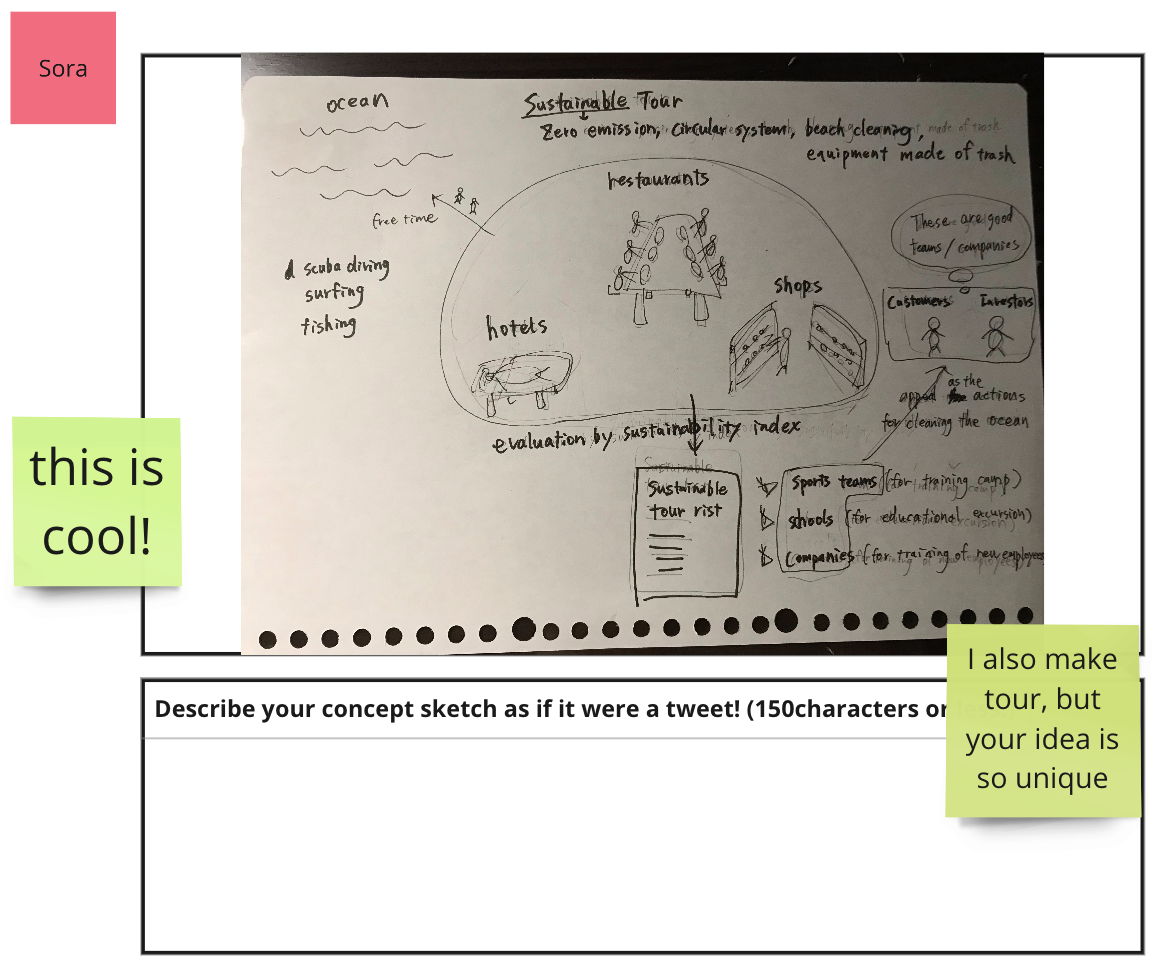 Sora
ocean
Sustainable Tour
Zero emission, Circular system, beach cleaning,
equipment made of trash
restaurants
free time
These are good
teams / companies
scuba diving
surfing
fishing
shops
Customers
Investors
hotels
as the
appeal actions
for cleaning the ocean
evaluation by sustainability index
Sustainable
tour rist
Sports teams (for training camp)
schools (for educational excursion)
Companies (for training of new employees
this is
cool!
I also make
tour, but
your idea is
so unique
Describe your concept sketch as if it were a tweet! (150characters or less!)